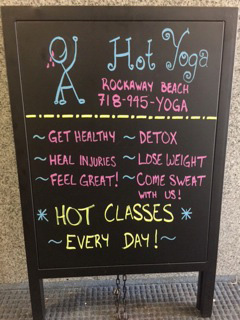 Hot Yoga
ROCKAWAY BEACH
718-945-YOGA
~GET HEALTHY ~DETOX
~HEAL INJURIES ~LOSE WEIGHT
~FEEL GREAT! ~COME SWEAT
WITH US!
*HOT CLASSES*
~EVERY DAY!~